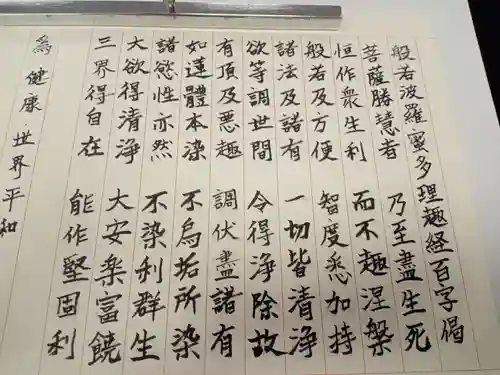 般若波羅蜜多理趣経百字偈
菩薩勝慧者 乃至盡生死
恒作衆生利 而不趣涅槃
般若及方便 智度悉加持
諸法及諸有 一切皆清浄
欲等調世間 令得浄除故
有頂及悪趣 調伏盡諸有
如蓮體本染 不為垢所染
諸慾性亦然 不染利群生
大欲得清浄 大安楽富饒
三界得自在 能作堅固利
為 健康・世界平和